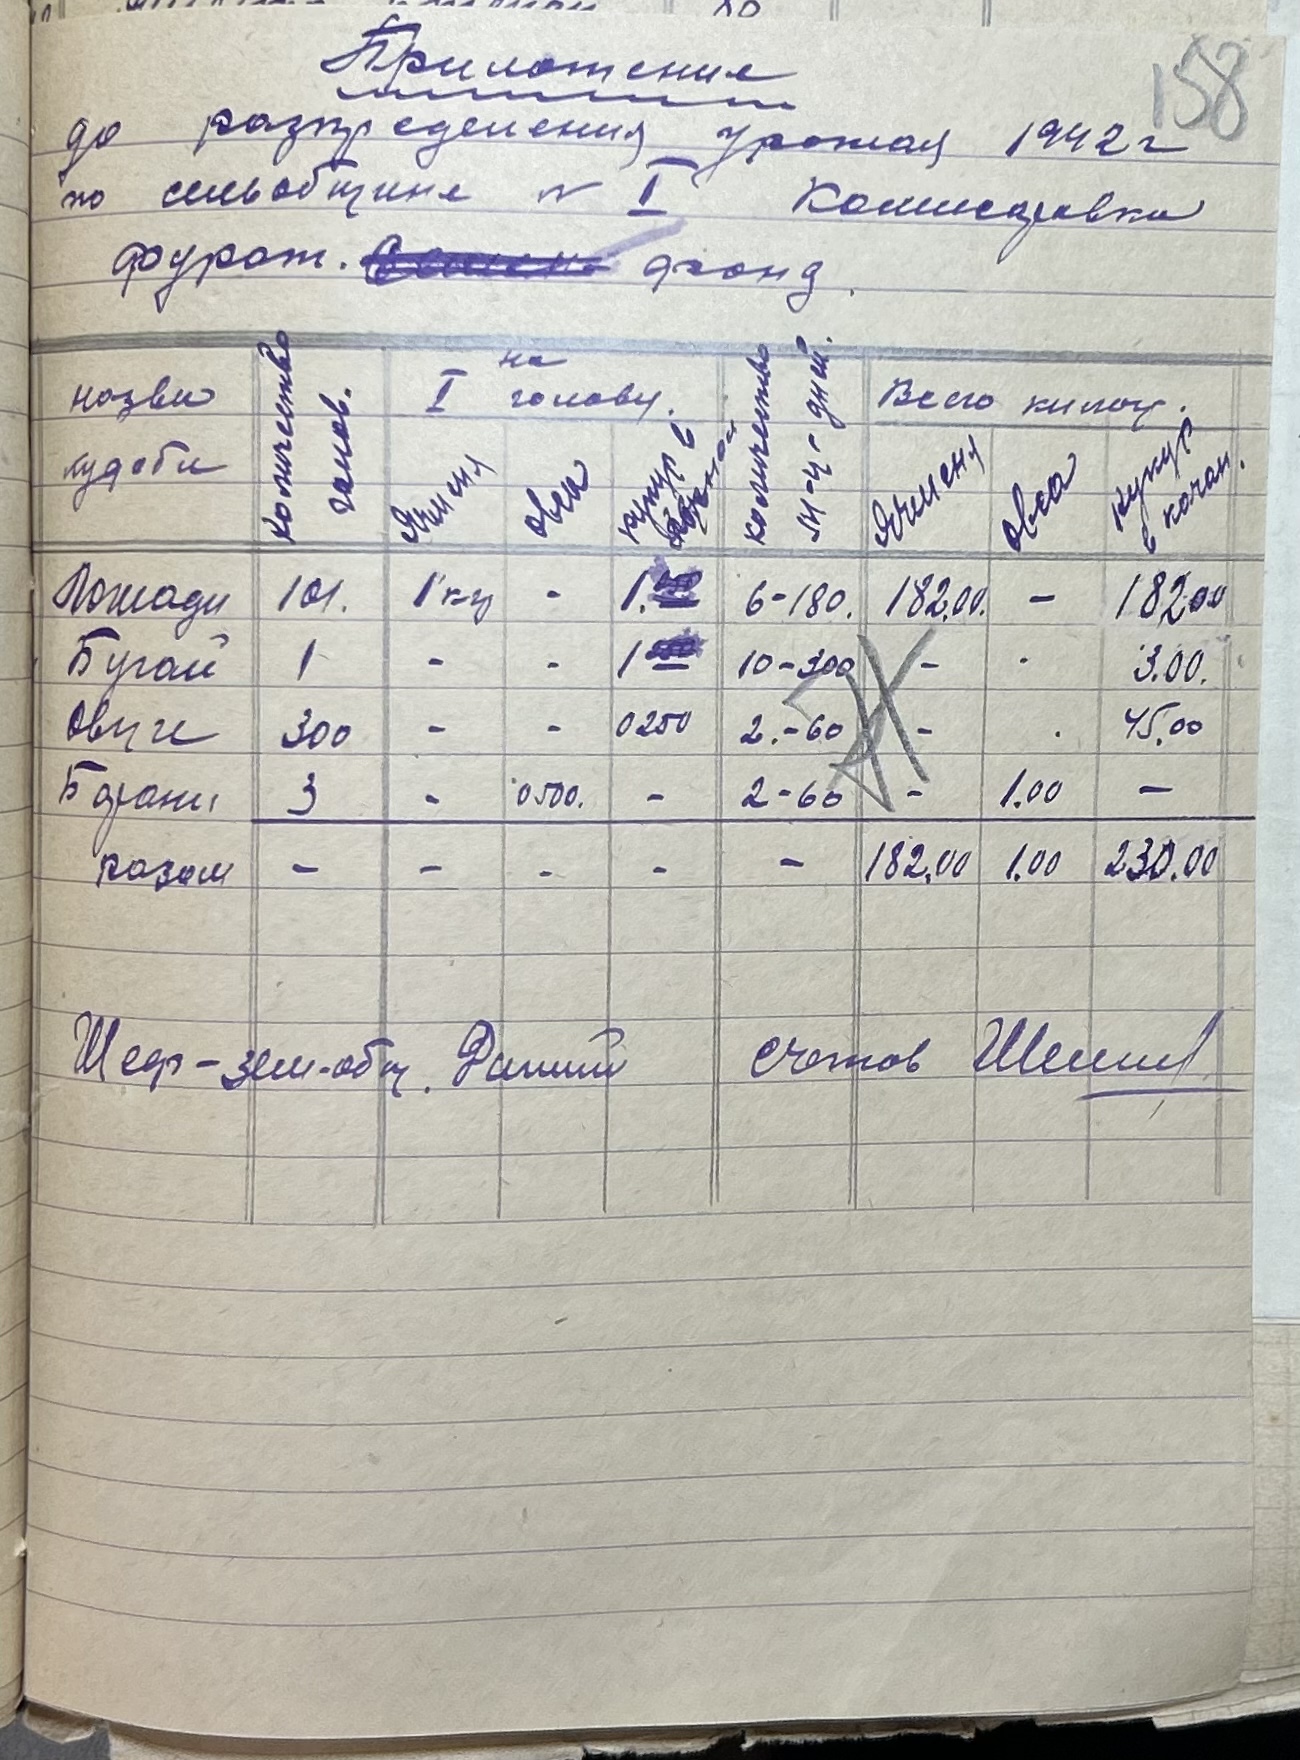 158
Приложение
до разпределения урожая 1942 г
по сельобщине № I Комисаровка
фураж. фонд.
назва худоби
количество голов.
I на голову.
Ячменя
овса
кукур в
количество м-ц-дней.
Всего килогр.
Ячменя
овса
кукур в качан.
Лошади 101. 1 кг - 1. 6-180. 182.00. - 182.00
Бугай 1 - - 1 10-300 - . 3.00.
Овцы 300 - - 0250 2.-60 - . 45.00
Барани 3 - 0500. - 2-60 - 1.00 -
разом - - - - - 182.00 1.00 230.00
-зем-общ. счетов